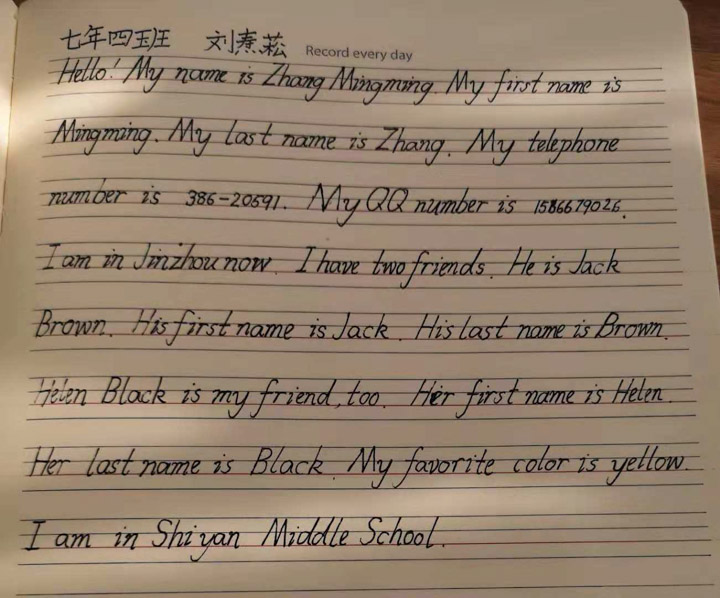 七年四班 刘熹菘 Record every day
Hello! My name is Zhang Mingming. My first name is
Mingming. My last name is Zhang. My telephone
number is 386-20591. My QQ number is 1586679026.
I am in Jinzhou now. I have two friends. He is Jack
Brown. His first name is Jack. His last name is Brown.
Helen Black is my friend, too. Her first name is Helen.
Her last name is Black. My favorite color is yellow.
I am in Shiyan Middle School.